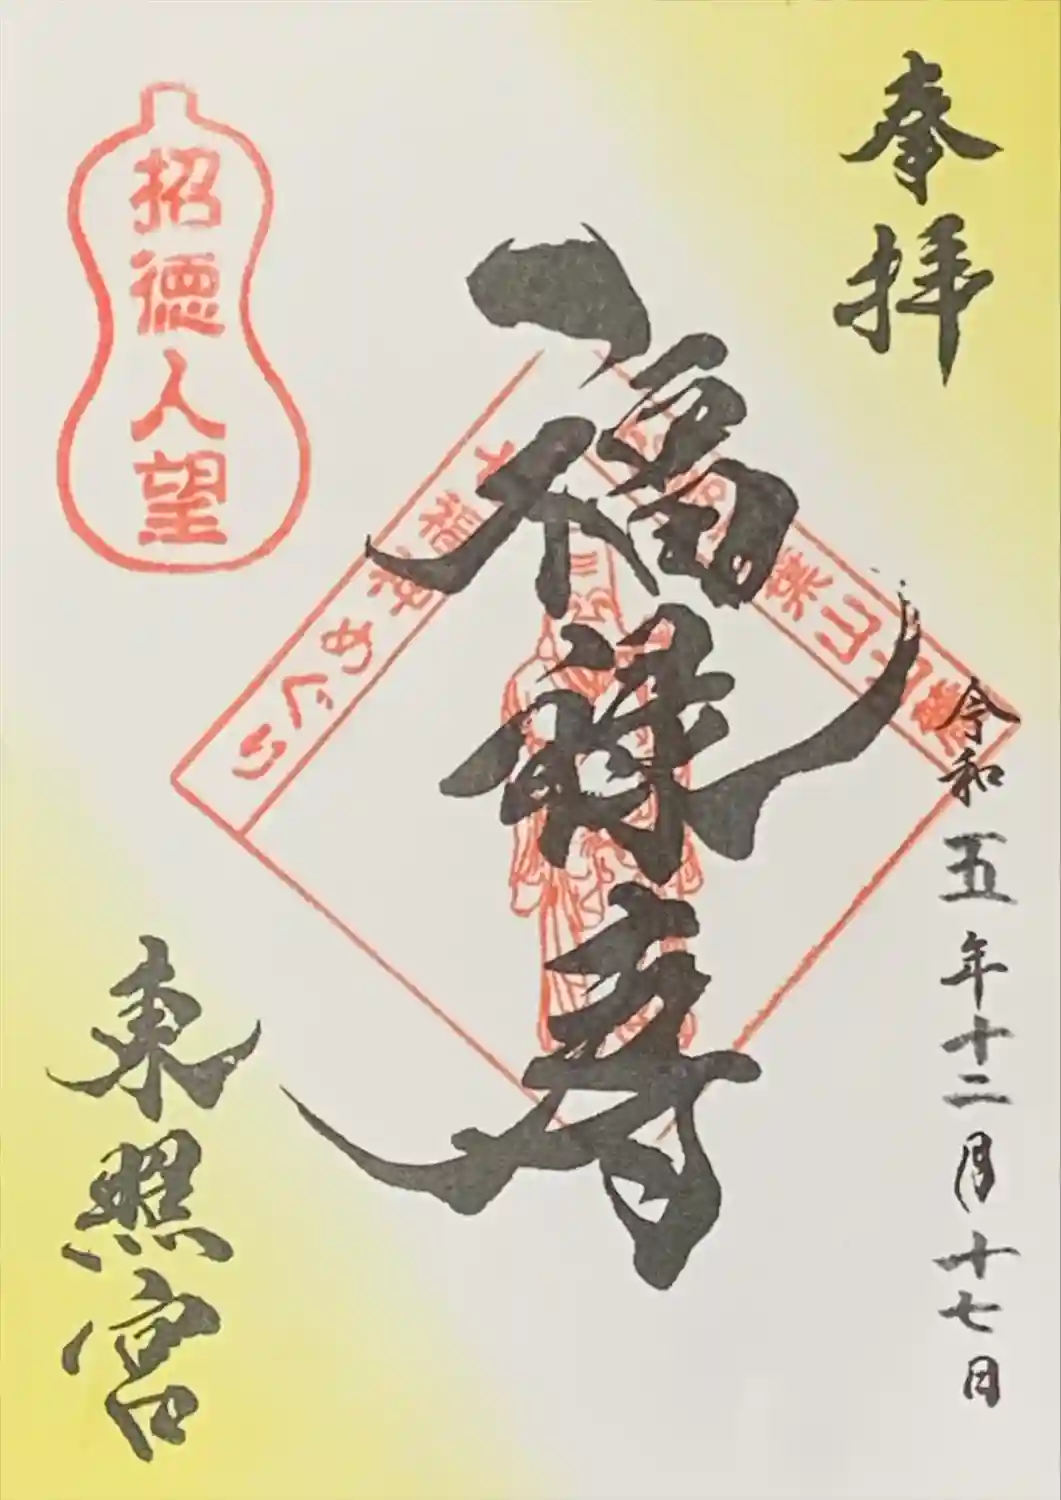 奉拝
福禄寿
令和五年十二月十七日
七福神めぐり
招徳人望
東照宮